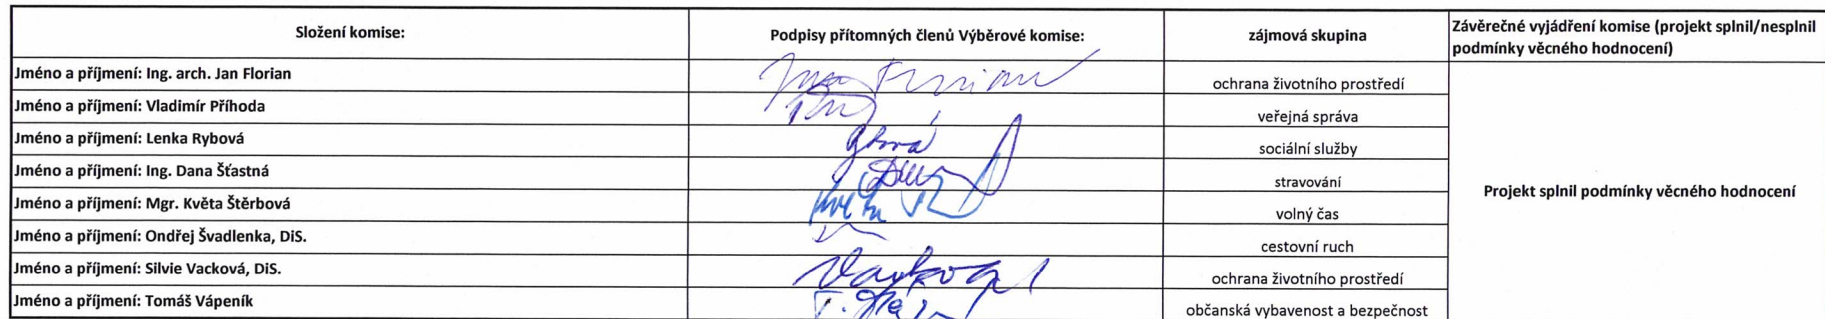 Složení komise: Podpisy přítomných členů Výběrové komise: zájmová skupina Závěrečné vyjádření komise (projekt splnil/nesplnil
podmínky věcného hodnocení)
Jméno a příjmení: Ing. arch. Jan Florian Jan Florian ochrana životního prostředí
Jméno a příjmení: Vladimír Příhoda veřejná správa
Jméno a příjmení: Lenka Rybová sociální služby
Jméno a příjmení: Ing. Dana Šťastná stravování
Projekt splnil podmínky věcného hodnocení
Jméno a příjmení: Mgr. Květa Štěrbová volný čas
Jméno a příjmení: Ondřej Švadlenka, DiS. cestovní ruch
Jméno a příjmení: Silvie Vacková, DiS. ochrana životního prostředí
Jméno a příjmení: Tomáš Vápeník občanská vybavenost a bezpečnost